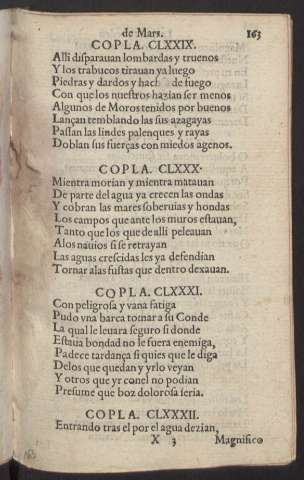 de Mars. 163
COPLA. CLXXIX.
Alli disparauan lombardas y truenos
Y los trabucos tirauan ya luego
Piedras y dardos y hach de fuego
Con que los nuestros hazian ser menos
Algunos de Moros tenidos por buenos
Lançan temblando las sus azagayas
Passan las lindes palenques y rayas
Doblan sus fuerças con miedos agenos.
COPLA. CLXXX.
Mientra morian y mientra matauan
De parte del agua ya crecen las ondas
Y cobran las mares soberuias y hondas
Los campos que ante los muros estauan,
Tanto que los que de alli peleauan
Alos nauios si se retrayan
Las aguas crescidas les ya defendian
Tornar alas fustas que dentro dexauan.
COPLA. CLXXXI.
Con peligrosa y vana fatiga
Pudo vna barca tomar a su Conde
La qual le leuara seguro si donde
Estaua bondad no le fuera enemiga,
Padece tardança si quies que le diga
Delos que quedan y yrlo veyan
Y otros que yr conel no podian
Presume que boz dolorosa seria.
COPLA. CLXXXII.
Entrando tras el por el agua dezian,
X 3 Magnifico
163